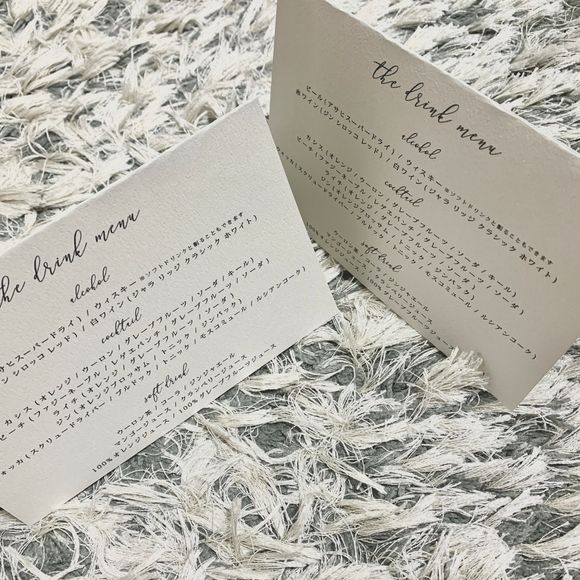 the drink menu
alcohol
ビール(アサヒスーパードライ) / ウィスキー ※ソフトドリンクと割ることもできます
赤ワイン(ジン シロッコ レッド) / 白ワイン(ジャラ リッジ クラシック ホワイト)
cocktail
カシス(オレンジ / ウーロン / グレープフルーツ / ソーダ / キール)
ピーチ(ファジーネーブル / レゲエパンチ / グレープフルーツ / ソーダ)
ライチ(オレンジ / グレープフルーツ / ソーダ)
ジン(オレンジブロッサム / トニック / ジンバック)
ウォッカ(スクリュードライバー / ブルドッグ / モスコミュール / ルシアンコーク)
soft drink
the drink menu
alcohol
スーパードライ) / ウィスキー ※ソフトドリンクと割ることもできます
ジン シロッコ レッド) / 白ワイン(ジャラ リッジ クラシック ホワイト)
cocktail
カシス(オレンジ / ウーロン / グレープフルーツ / ソーダ / キール)
ピーチ(ファジーネーブル / レゲエパンチ / グレープフルーツ / ソーダ)
ライチ(オレンジ / グレープフルーツ / ソーダ)
ジン(オレンジブロッサム / トニック / ジンバック)
ォッカ(スクリュードライバー / ブルドッグ / モスコミュール / ルシアンコーク)
soft drink
ウーロン茶 / ジンジャエール
マンゴージュース / コーラ
100%オレンジジュース / 100%